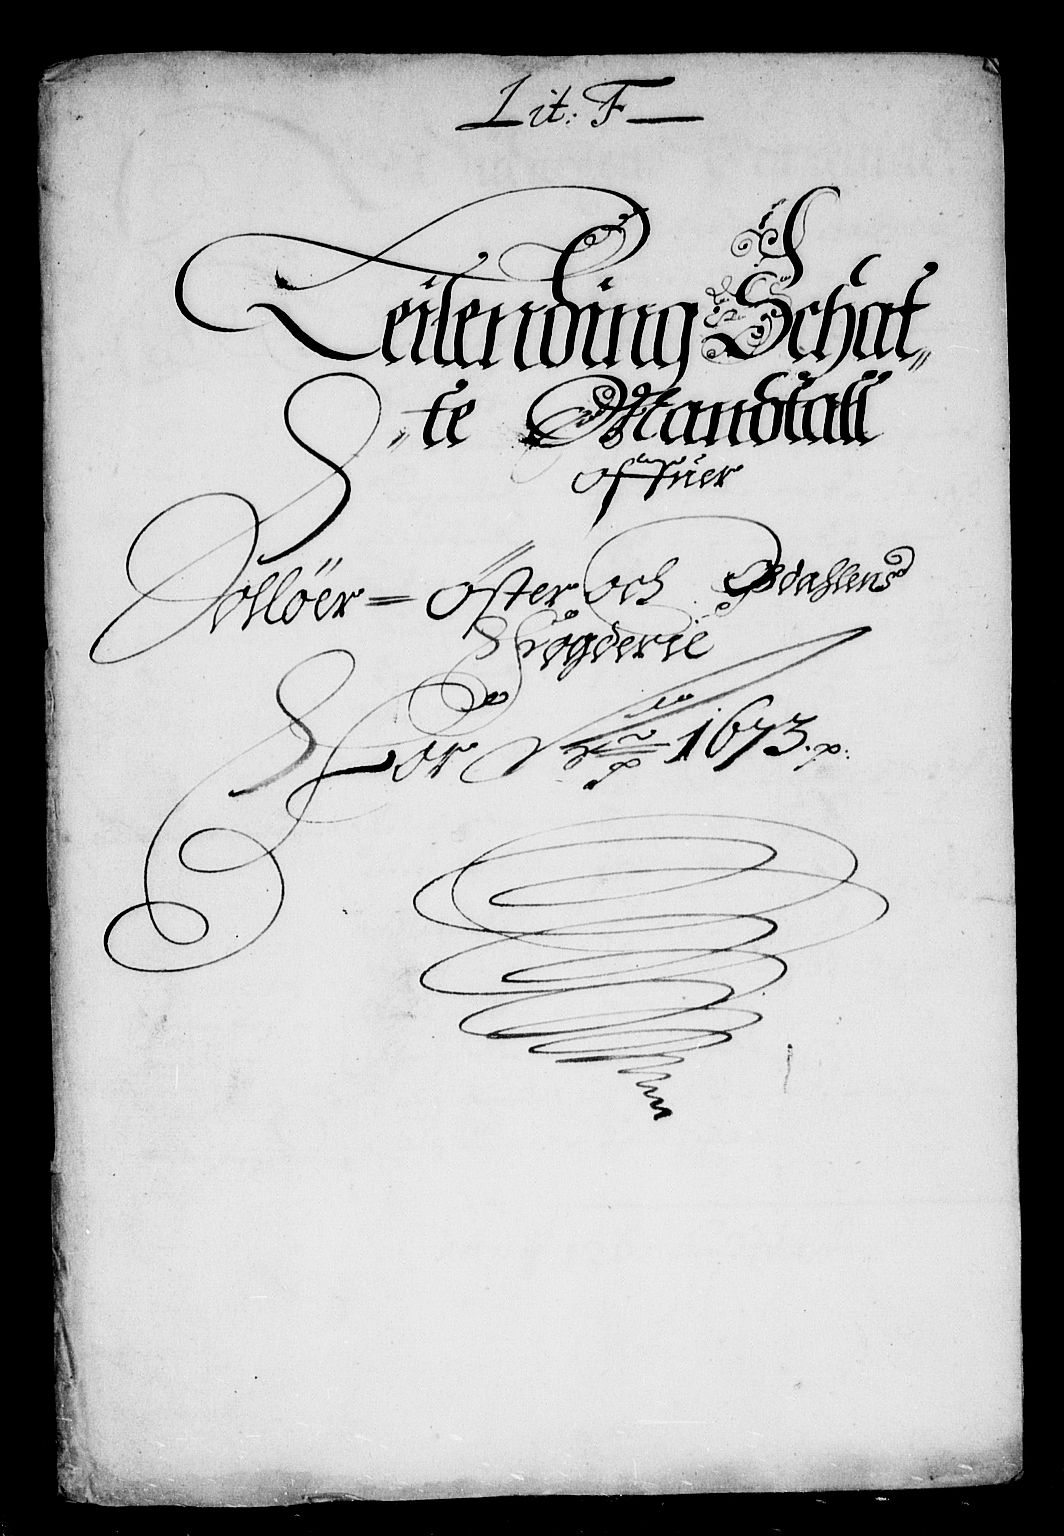 Lit: F
Leilending Schat„
„te Mandtall
offuer
Solløer = Øster och Ødahlens
Fögderie
For 1673. p: